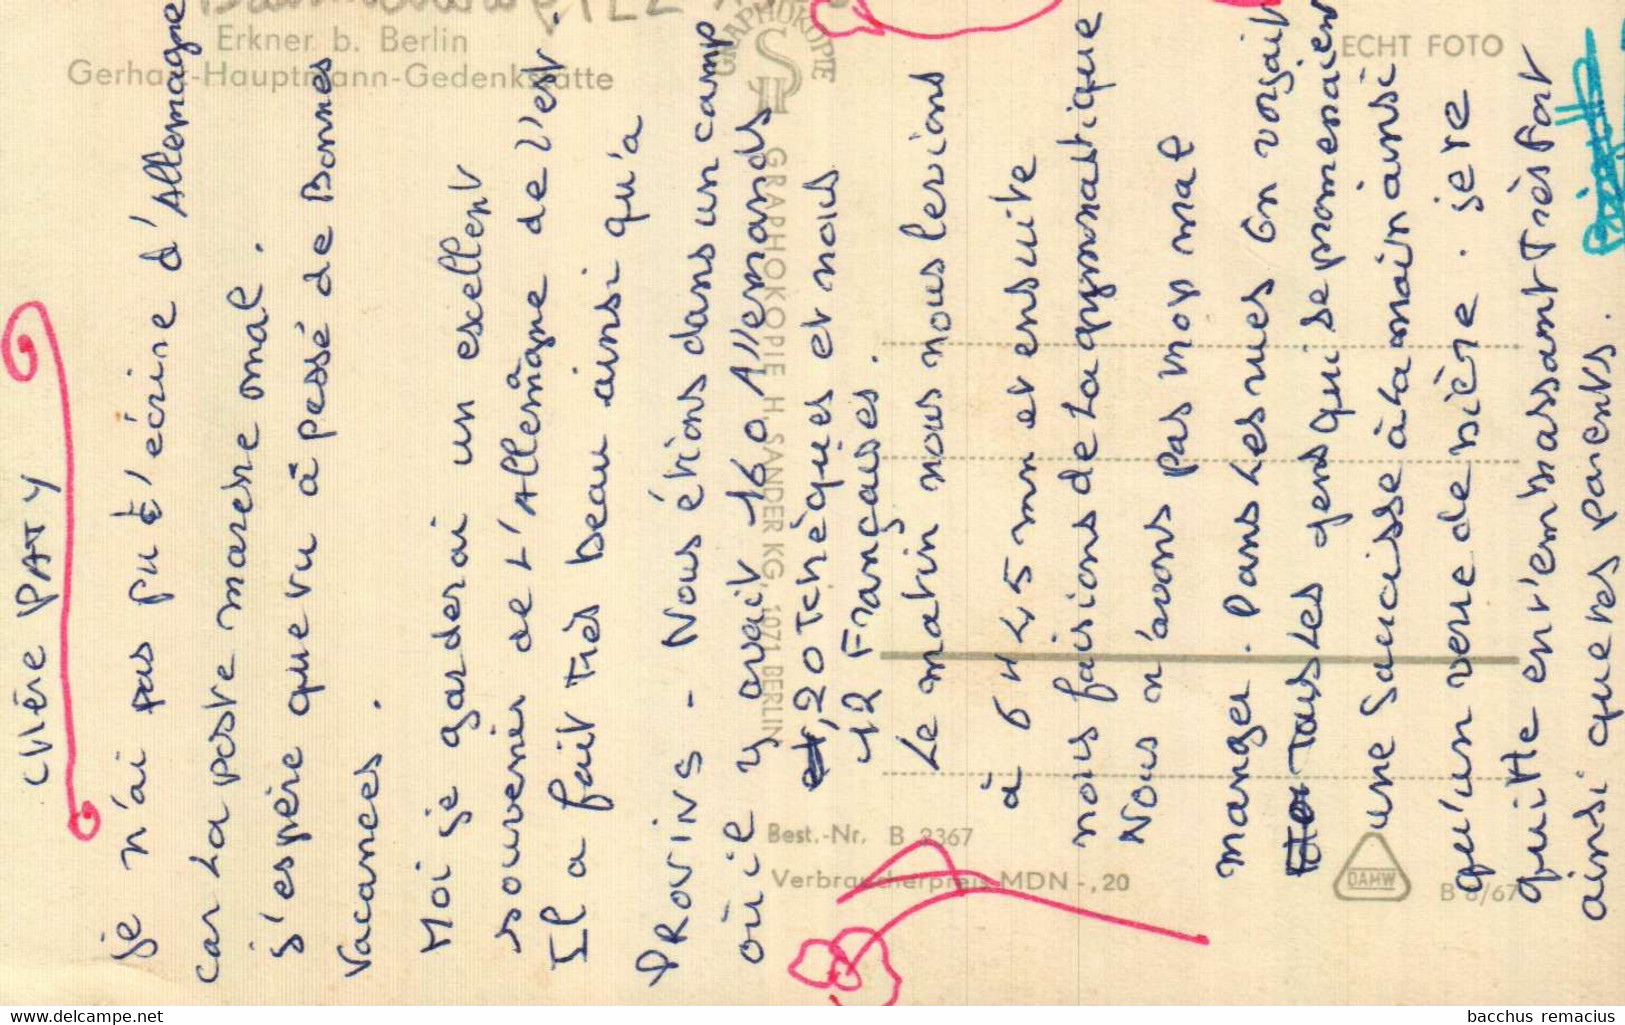 CHÈRE PATY
je n'ai pas pu t'écrire d'Allemagne
car La poste marche mal.
j'espère que tu à passé de Bonnes
Vacances.
Moi je garderai un excellent
souvenir de L'Allemagne de l'est.
Il a fait Très beau ainsi qu'a
PROVINS - Nous étions dans un camp
où il y avait 160 Allemands
20 Tchèques et nous
12 Françaises.
Le matin nous nous levions
à 6 H 45 mn et ensuite
nous faisions de La gymnastique
Nous n'avons pas trop mal
manger. Dans Les rues on voyait
Tous Les gens qui se promenaient
une Saucisse à La main ainsi
qu'un verre de bière. je te
quitte en t'embrassant Très fort
ainsi que tes parents.
Erkner b. Berlin
Gerhart-Hauptmann-Gedenkstätte
GRAPHOKOPIE
ECHT FOTO
GRAPHOKOPIE H. SANDER KG, 1071 BERLIN
Best.-Nr. B 2367
Verbraucherpreis MDN -,20
DAMW
B 6/67
www.delcampe.net
bacchus remacius